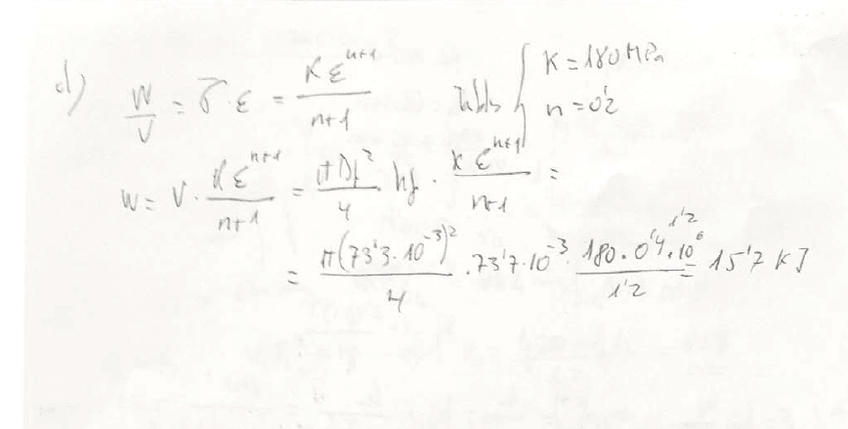 d) W/V = σ̅ · ε = K ε^(n+1) / (n+1)   Tablas { K = 180 MPa
n = 0'2
W = V · K ε^(n+1) / (n+1) = π Df² / 4 · hf · K ε^(n+1) / (n+1) =
= π (73'3 · 10^-3)² / 4 · 73'7 · 10^-3 · 180 · 0'4^1'2 · 10^6 / 1'2 = 15'7 KJ